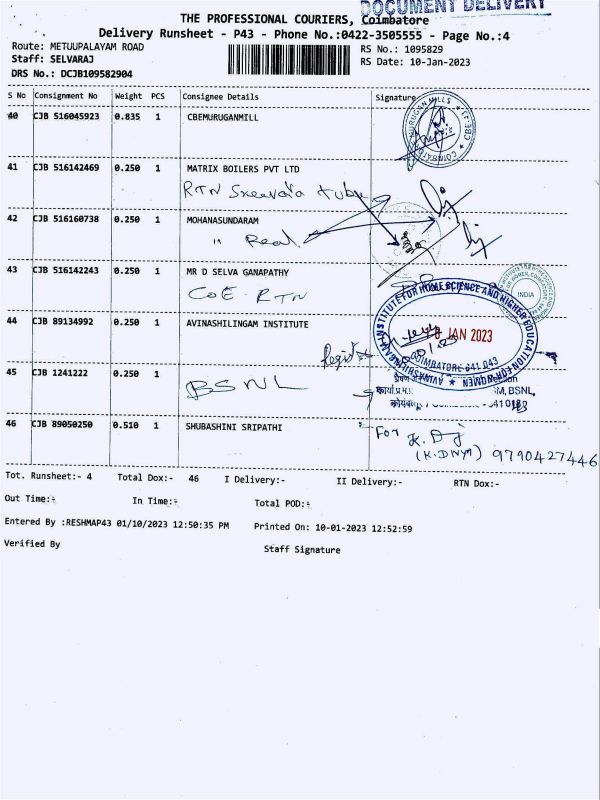 DOCUMENT DELIVERY
THE PROFESSIONAL COURIERS, Coimbatore
Delivery Runsheet - P43 - Phone No.:0422-3505555 - Page No.:4
Route: METUUPALAYAM ROAD
RS No.: 1095829
Staff: SELVARAJ
RS Date: 10-Jan-2023
DRS No.: DCJB109582904
S No Consignment No Weight PCS Consignee Details Signature
40 CJB 516045923 0.835 1 CBEMURUGANMILL
41 CJB 516142469 0.250 1 MATRIX BOILERS PVT LTD
RTN
42 CJB 516160738 0.250 1 MOHANASUNDARAM
43 CJB 516142243 0.250 1 MR D SELVA GANAPATHY
COE - RTN
INSTITUTE FOR HOME SCIENCE AND HIGHER EDUCATION FOR WOMEN
INDIA
44 CJB 89134992 0.250 1 AVINASHILINGAM INSTITUTE
JAN 2023
COIMBATORE 641 043
45 CJB 1241222 0.250 1
BSNL
BSNL,
46 CJB 89050250 0.510 1 SHUBASHINI SRIPATHI
For
9790427446
Tot. Runsheet:- 4 Total Dox:- 46 I Delivery:- II Delivery:- RTN Dox:-
Out Time:- In Time:- Total POD:-
Entered By :RESHMAP43 01/10/2023 12:50:35 PM Printed On: 10-01-2023 12:52:59
Verified By Staff Signature